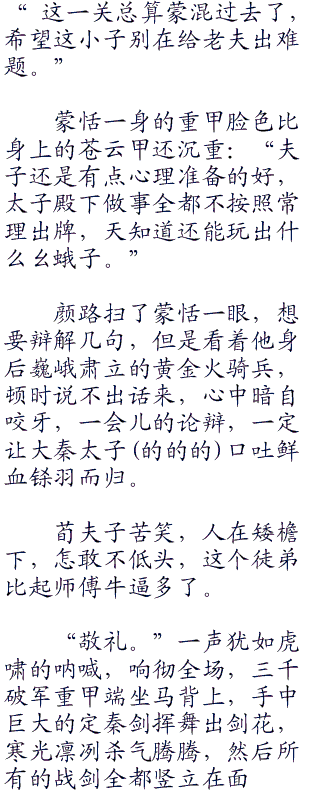 “ 这一关总算蒙混过去了，
希望这小子别在给老夫出难
题。”
蒙恬一身的重甲脸色比
身上的苍云甲还沉重：“夫
子还是有点心理准备的好，
太子殿下做事全都不按照常
理出牌，天知道还能玩出什
么幺蛾子。”
颜路扫了蒙恬一眼，想
要辩解几句，但是看着他身
后巍峨肃立的黄金火骑兵，
顿时说不出话来，心中暗自
咬牙，一会儿的论辩，一定
让大秦太子(的的的)口吐鲜
血铩羽而归。
荀夫子苦笑，人在矮檐
下，怎敢不低头，这个徒弟
比起师傅牛逼多了。
“敬礼。”一声犹如虎
啸的呐喊，响彻全场，三千
破军重甲端坐马背上，手中
巨大的定秦剑挥舞出剑花，
寒光凛冽杀气腾腾，然后所
有的战剑全都竖立在面